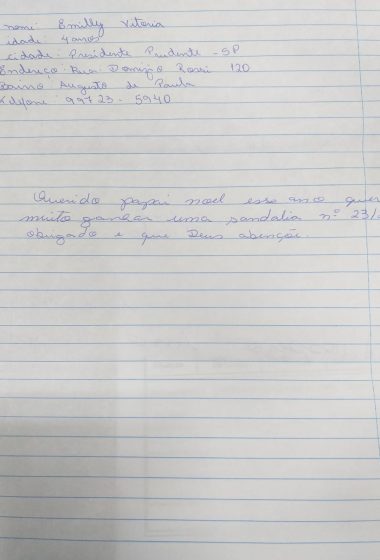 nome: Emilly Vitoria
idade: 4 anos
cidade: Presidente Prudente - SP
Endereço: Rua: Domingo Rossi 120
Bairro Augusto de Paula
99723-5940
Querido papai noel esse ano quer
muito ganhar uma sandalia nº 23/
obrigado e que Deus abençõe.